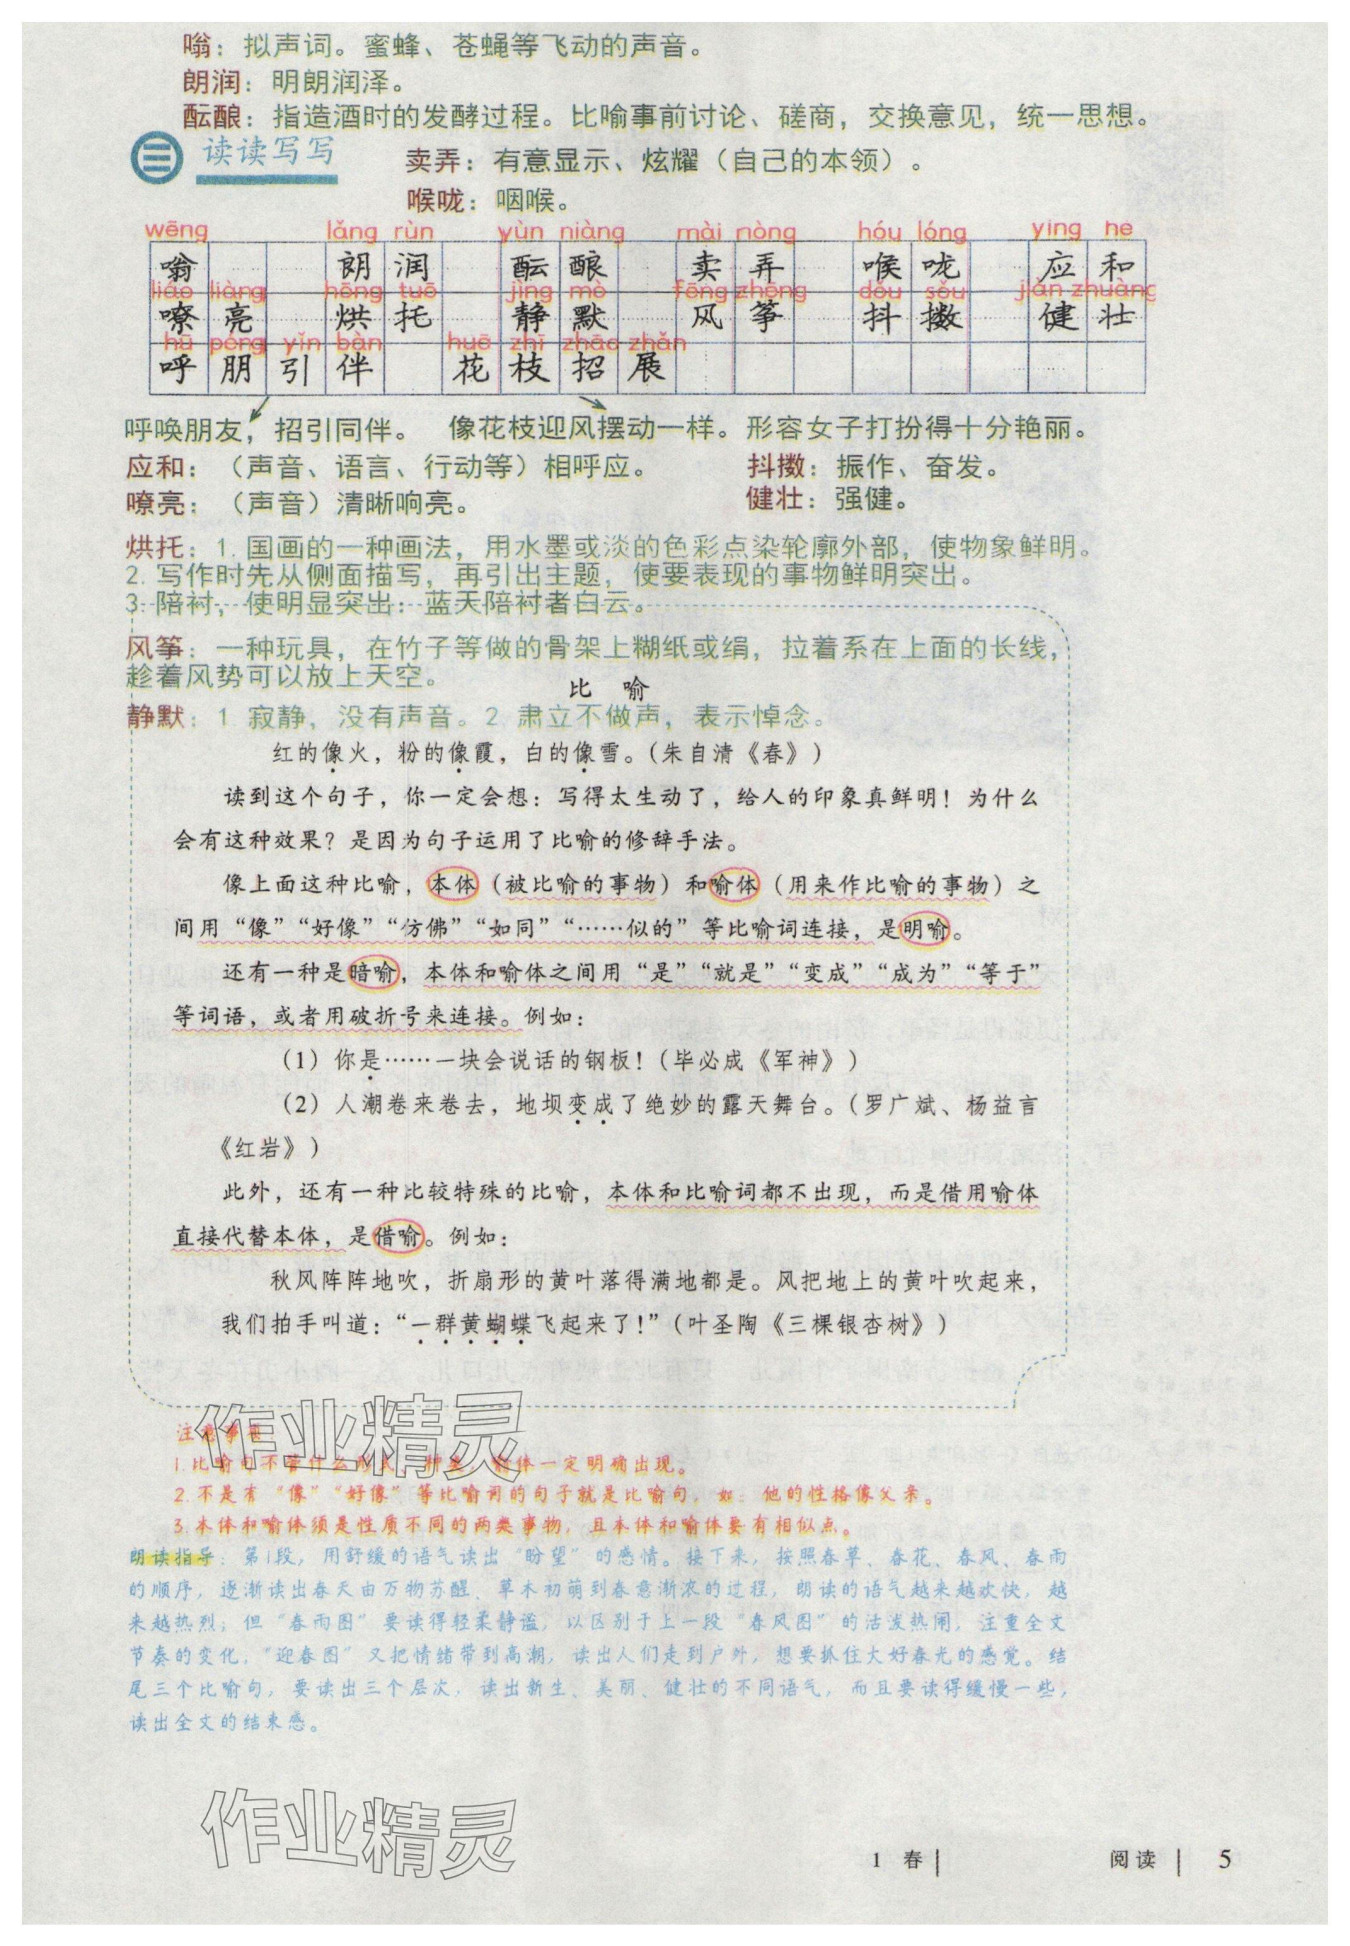 嗡：拟声词。蜜蜂、苍蝇等飞动的声音。
朗润：明朗润泽。
酝酿：指造酒时的发酵过程。比喻事前讨论、磋商，交换意见，统一思想。
三 读读写写
卖弄：有意显示、炫耀（自己的本领）。
喉咙：咽喉。
wēng lǎng rùn yùn niàng mài nòng hóu lóng yìng hè
嗡 朗润 酝酿 卖弄 喉咙 应和
liáo liàng hōng tuō jìng mò fēng zhēng dǒu sǒu jiàn zhuàng
嘹亮 烘托 静默 风筝 抖擞 健壮
hū péng yǐn bàn huā zhī zhāo zhǎn
呼朋引伴 花枝招展
呼唤朋友，招引同伴。 像花枝迎风摆动一样。形容女子打扮得十分艳丽。
应和：（声音、语言、行动等）相呼应。 抖擞：振作、奋发。
嘹亮：（声音）清晰响亮。 健壮：强健。
烘托：1.国画的一种画法，用水墨或淡的色彩点染轮廓外部，使物象鲜明。
2.写作时先从侧面描写，再引出主题，使要表现的事物鲜明突出。
3.陪衬，使明显突出：蓝天陪衬者白云。
风筝：一种玩具，在竹子等做的骨架上糊纸或绢，拉着系在上面的长线，
趁着风势可以放上天空。
比 喻
静默：1.寂静，没有声音。2.肃立不做声，表示悼念。
红的像火，粉的像霞，白的像雪。（朱自清《春》）
读到这个句子，你一定会想：写得太生动了，给人的印象真鲜明！为什么
会有这种效果？是因为句子运用了比喻的修辞手法。
像上面这种比喻，本体（被比喻的事物）和喻体（用来作比喻的事物）之
间用“像”“好像”“仿佛”“如同”“……似的”等比喻词连接，是明喻。
还有一种是暗喻，本体和喻体之间用“是”“就是”“变成”“成为”“等于”
等词语，或者用破折号来连接。例如：
（1）你是……一块会说话的钢板！（毕必成《军神》）
（2）人潮卷来卷去，地坝变成了绝妙的露天舞台。（罗广斌、杨益言
《红岩》）
此外，还有一种比较特殊的比喻，本体和比喻词都不出现，而是借用喻体
直接代替本体，是借喻。例如：
秋风阵阵地吹，折扇形的黄叶落得满地都是。风把地上的黄叶吹起来，
我们拍手叫道：“一群黄蝴蝶飞起来了！”（叶圣陶《三棵银杏树》）
作业精灵
注意事项
1.比喻句不管什么形式、种类，喻体一定明确出现。
2.不是有“像”“好像”等比喻词的句子就是比喻句，如：他的性格像父亲。
3.本体和喻体须是性质不同的两类事物，且本体和喻体要有相似点。
朗读指导：第1段，用舒缓的语气读出“盼望”的感情。接下来，按照春草、春花、春风、春雨
的顺序，逐渐读出春天由万物苏醒、草木初萌到春意渐浓的过程，朗读的语气越来越欢快，越
来越热烈；但“春雨图”要读得轻柔静谧，以区别于上一段“春风图”的活泼热闹，注重全文
节奏的变化，“迎春图”又把情绪带到高潮，读出人们走到户外，想要抓住大好春光的感觉。结
尾三个比喻句，要读出三个层次，读出新生、美丽、健壮的不同语气，而且要读得缓慢一些，
读出全文的结束感。
作业精灵
1 春 阅读 5